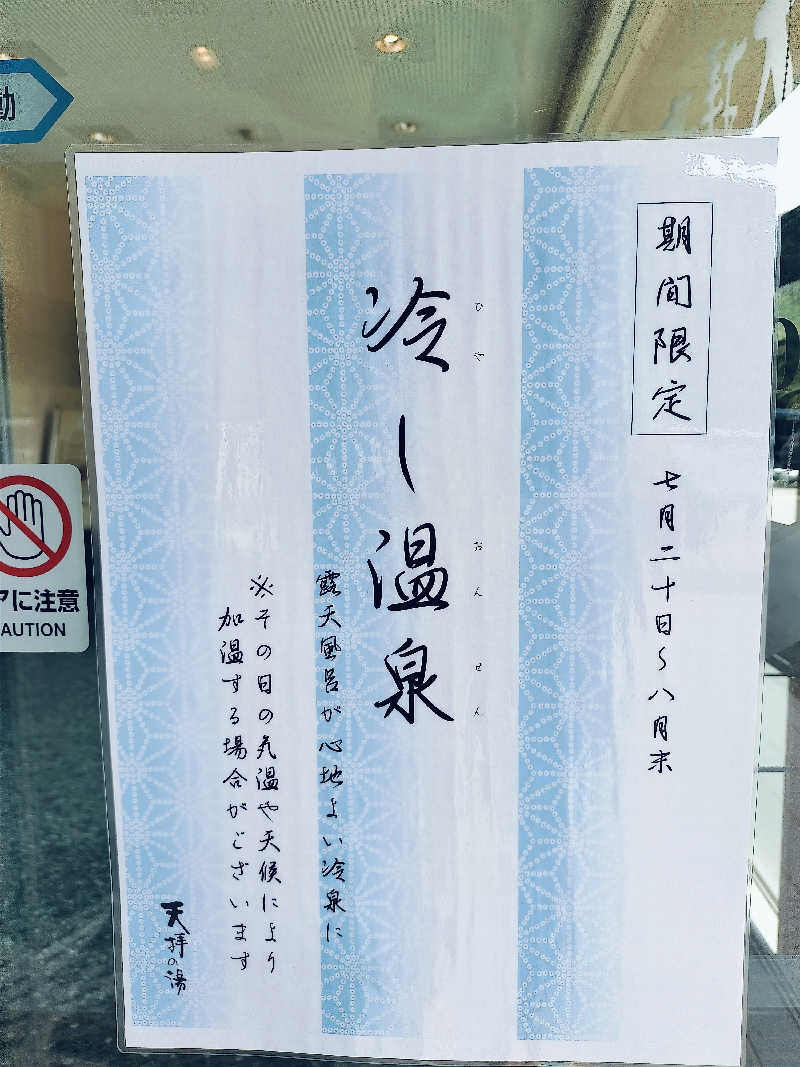 期間限定
七月二十日〜八月末
冷し温泉
ひや
おんせん
露天風呂が心地よい冷泉に
※その日の気温や天候により
加温する場合がございます
天拝の湯
動
アに注意
AUTION